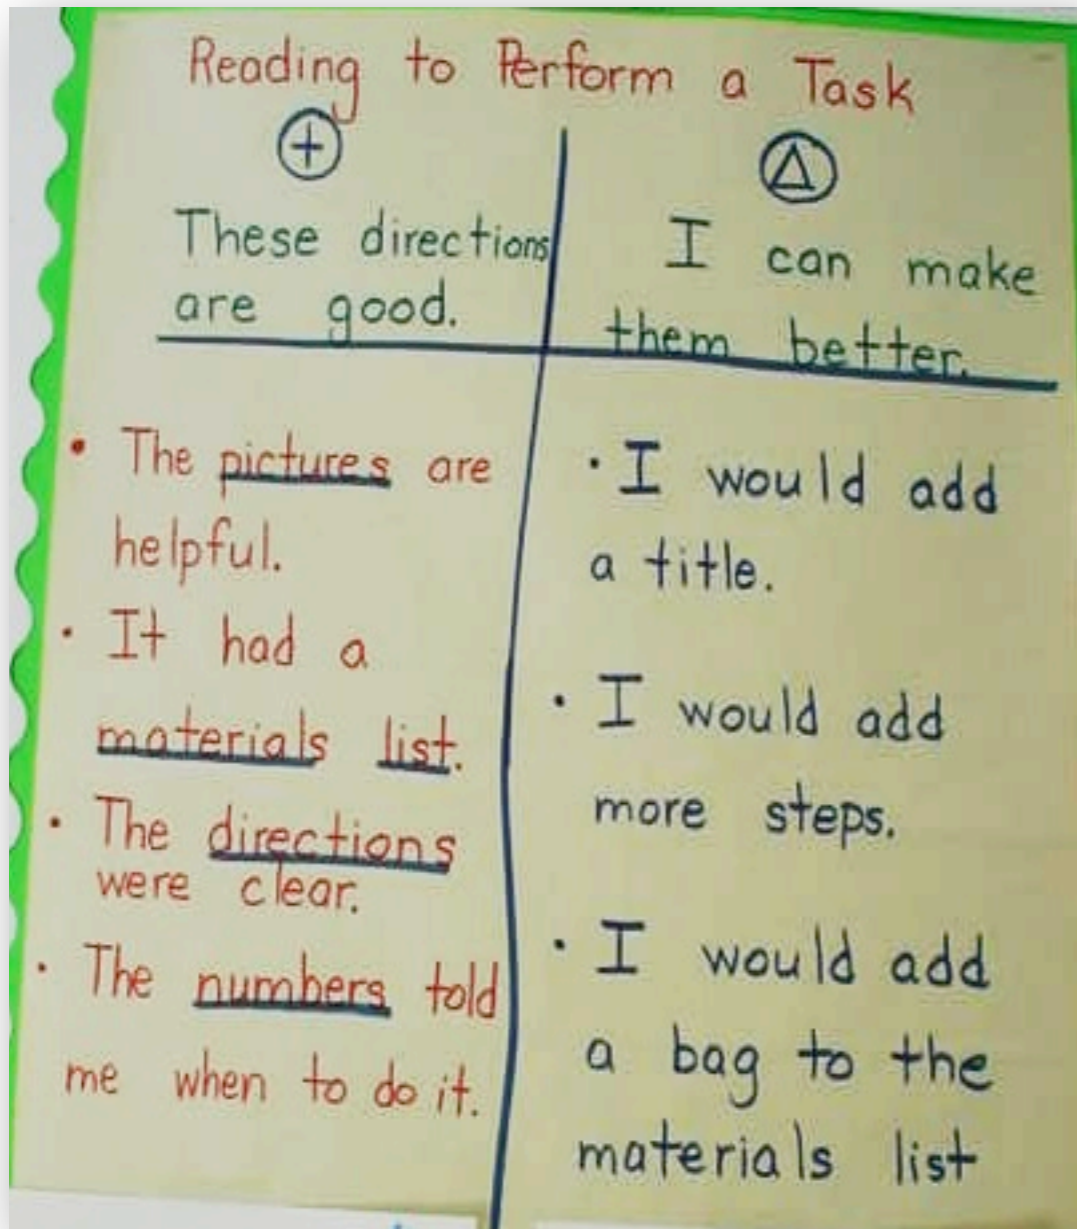 Reading to Perform a Task
+
These directions
are good.
• The pictures are
helpful.
• It had a
materials list.
• The directions
were clear.
• The numbers told
me when to do it.
Δ
I can make
them better.
• I would add
a title.
• I would add
more steps.
• I would add
a bag to the
materials list